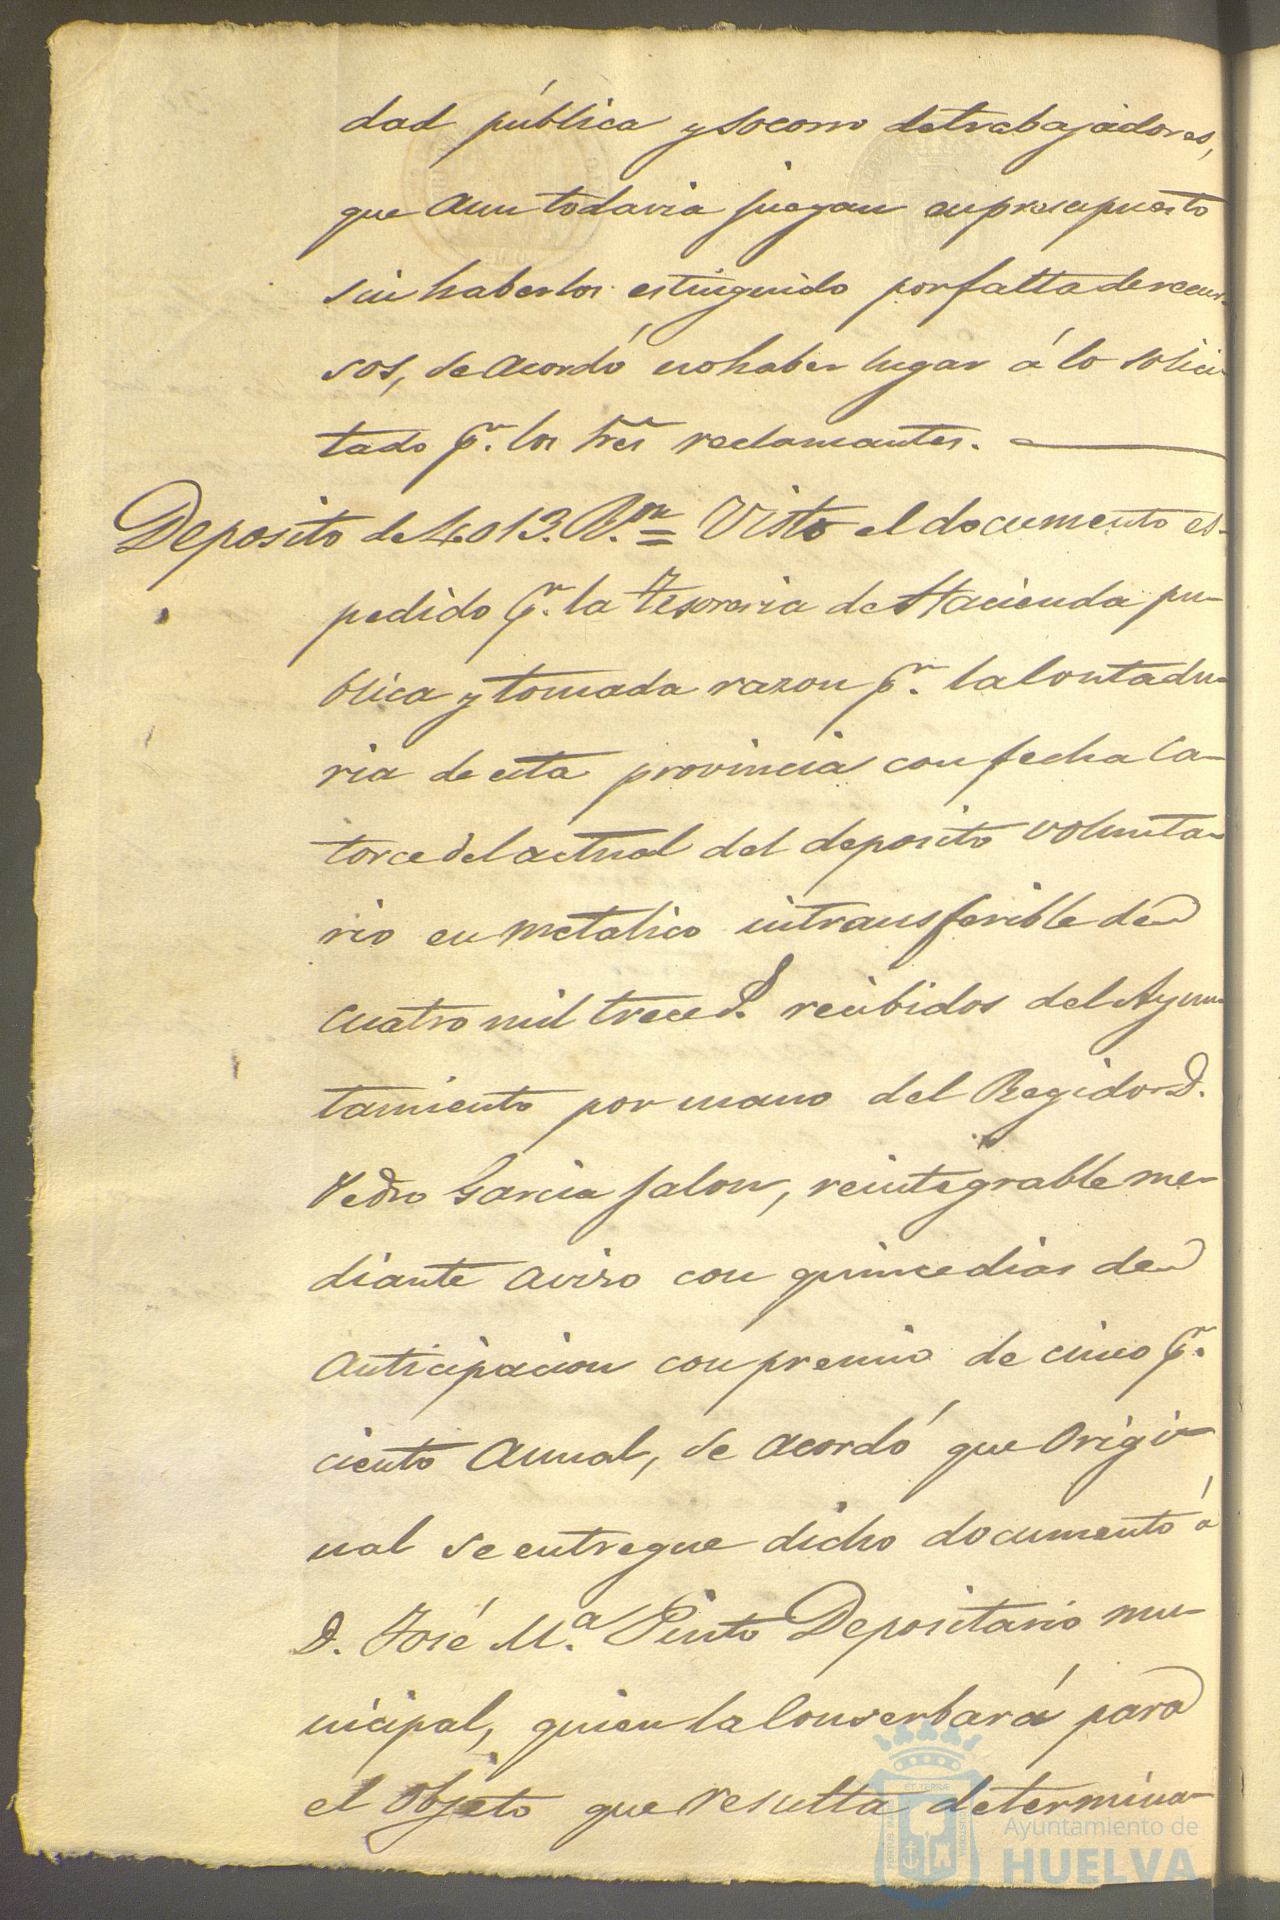 dad pública y socorro de trabajadores,
que aun todavia juegan en presupuesto
sin haberlos estinguido por falta de recur-
sos, se acordó no haber lugar á lo solici-
tado pr. los tres reclamantes.
Deposito de 4.013. Rn = Visto el documento es-
pedido pr. la Tesoreria de Hacienda pu-
blica y tomada razon pr. la Contadu-
ria de esta provincia con fecha ca-
torce del actual del deposito volunta-
rio en metalico intransferible de
cuatro mil trece rs. recibidos del Ayun-
tamiento por mano del Regidor D.
Pedro Garcia Jalon, reintegrable me-
diante aviso con quince dias de
anticipacion con premio de cinco pr.
ciento anual, se acordó que origi-
nal se entregue dicho documento á
D. José Ma. Pinto Depositario mu-
nicipal, quien la Conserbará para
el objeto que resulta determina-
Ayuntamiento de
HUELVA